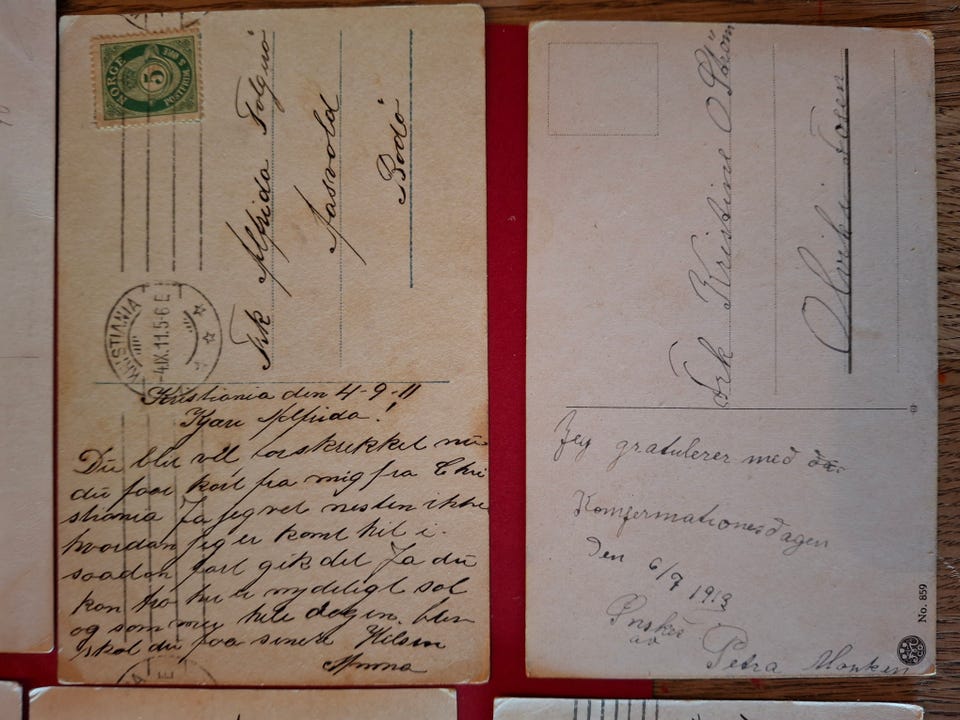 NORGE
5
POSTFRIM.
KRISTIANIA
4 IX.11.5-6 E
Frk Alfrida
Bodø
Kristiania den 4-9-11
Kjære Alfrida!
Du blir vel forskrekket nu
du faar kort fra mig fra Chri
stiania Ja jeg vet nesten ikke
hvordan jeg er komt hit i
saadan fart gik det Ja du
kan tro her er nydeligt sol
og sommer hele dagen.
skal du faa senere Hilsen
Anna
Frk Kristine O
Jeg gratulerer med
Konfermationesdagen
Den 6/7 1913
Ønskes
av
Petra Monken
No. 859